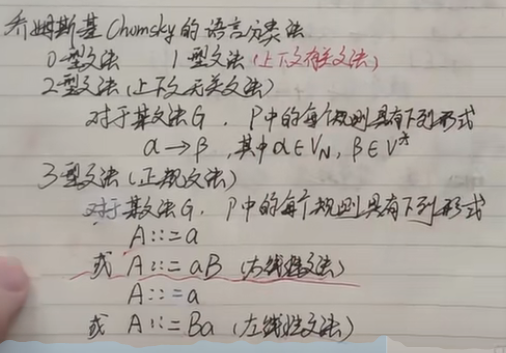 乔姆斯基 Chomsky 的语言分类法
0型文法 1型文法(上下文有关文法)
2型文法(上下文无关文法)
对于某文法G, P中的每个规则具有下列形式
α→β, 其中α∈VN, β∈V*
3型文法(正规文法)
对于某文法G, P中的每个规则具有下列形式
A::=a
或 A::=aB (右线性文法)
A::=a
或 A::=Ba (左线性文法)